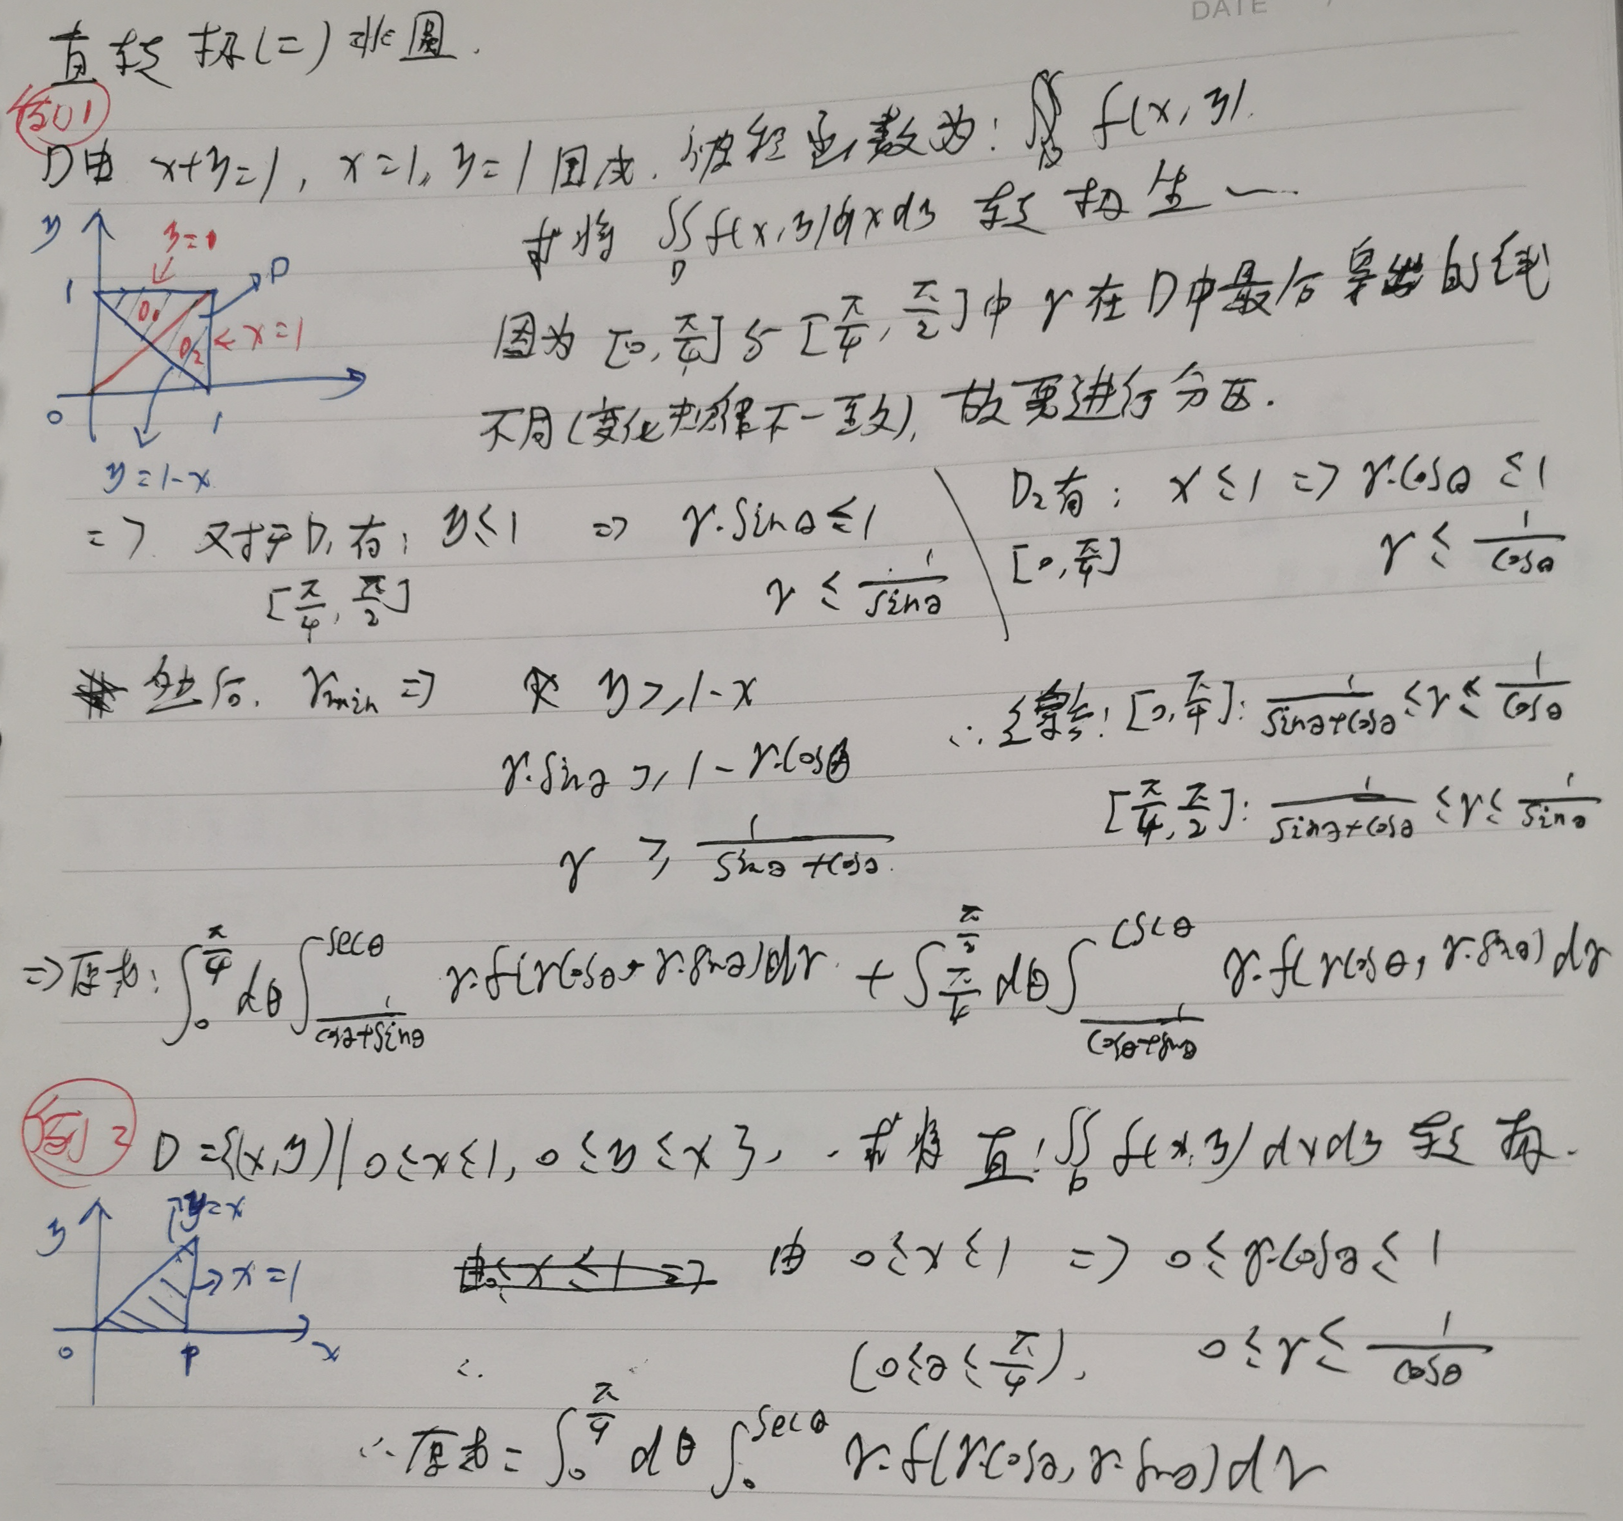 DATE
直转极(二)非圆.
例1
D由 x+y=1, x=1, y=1 围成. 被积函数为: ∬_D f(x,y).
求将 ∬_D f(x,y)dxdy 转极坐一
y
y=1
D
1
D₁
D₂ ← x=1
0
1
y=1-x
因为 [0,π/4] 与 [π/4,π/2] 中 r 在 D 中最后穿出的线
不同(变化规律不一致), 故要进行分区.
=> 对于D₁有: y≤1 => r·sinθ≤1
[π/4, π/2] r ≤ 1/sinθ
D₂有: x≤1 => r·cosθ ≤1
[0,π/4] r ≤ 1/cosθ
然后. r_min => 求 y≥1-x
r·sinθ ≥ 1-r·cosθ
r ≥ 1/(sinθ+cosθ)
∴ 综合: [0,π/4]: 1/(sinθ+cosθ) ≤r≤ 1/cosθ
[π/4,π/2]: 1/(sinθ+cosθ) ≤r≤ 1/sinθ
=>原式: ∫_0^{π/4} dθ ∫_{1/(cosθ+sinθ)}^{secθ} r·f(rcosθ, r·sinθ)dr + ∫_{π/4}^{π/2} dθ ∫_{1/(cosθ+sinθ)}^{cscθ} r·f(rcosθ, r·sinθ)dr
例2
D={(x,y)|0≤x≤1, 0≤y≤x}, 求将 直: ∬_D f(x,y)dxdy 转极.
y
y=x
→x=1
0
1
x
由 0≤x≤1 => 0≤r·cosθ≤1
∴ (0≤θ≤π/4), 0≤r≤ 1/cosθ
∴原式= ∫_0^{π/4} dθ ∫_0^{secθ} r·f(r·cosθ, r·sinθ)dr